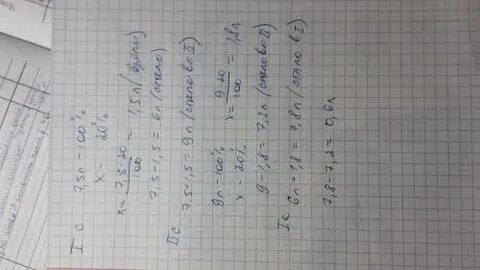 I с 7,5л - 100%
х - 20%
х = 7,5·20/100 = 1,5л (взяли)
7,5-1,5 = 6л (стало)
II с 7,5+1,5 = 9л (стало во II)
9л - 100%
х - 20%
х = 9·20/100 = 1,8л
9-1,8 = 7,2л (стало во II)
I с 6л + 1,8 = 7,8л (стало в I)
7,8-7,2 = 0,6л